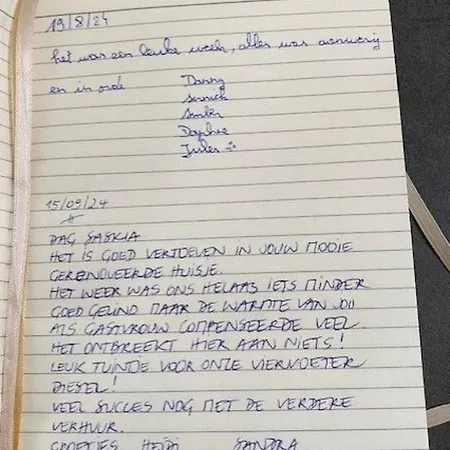 19/8/24
het was een leuke week, alles was aanwezig
en in orde Danny
Amber
Daphne
Jules
15/09/24
DAG SASKIA
HET IS GOED VERTOEVEN IN JOUW MOOIE
GERENOVEERDE HUISJE.
HET WEER WAS ONS HELAAS IETS MINDER
GOED GEZIND MAAR DE WARMTE VAN JOU
ALS GASTVROUW COMPENSEERDE VEEL.
HET ONTBREEKT HIER AAN NIETS!
LEUK TUINTJE VOOR ONZE VIERVOETER
DIESEL!
VEEL SUCCES NOG MET DE VERDERE
VERHUUR.
GROETJES HEIDI SANDRA